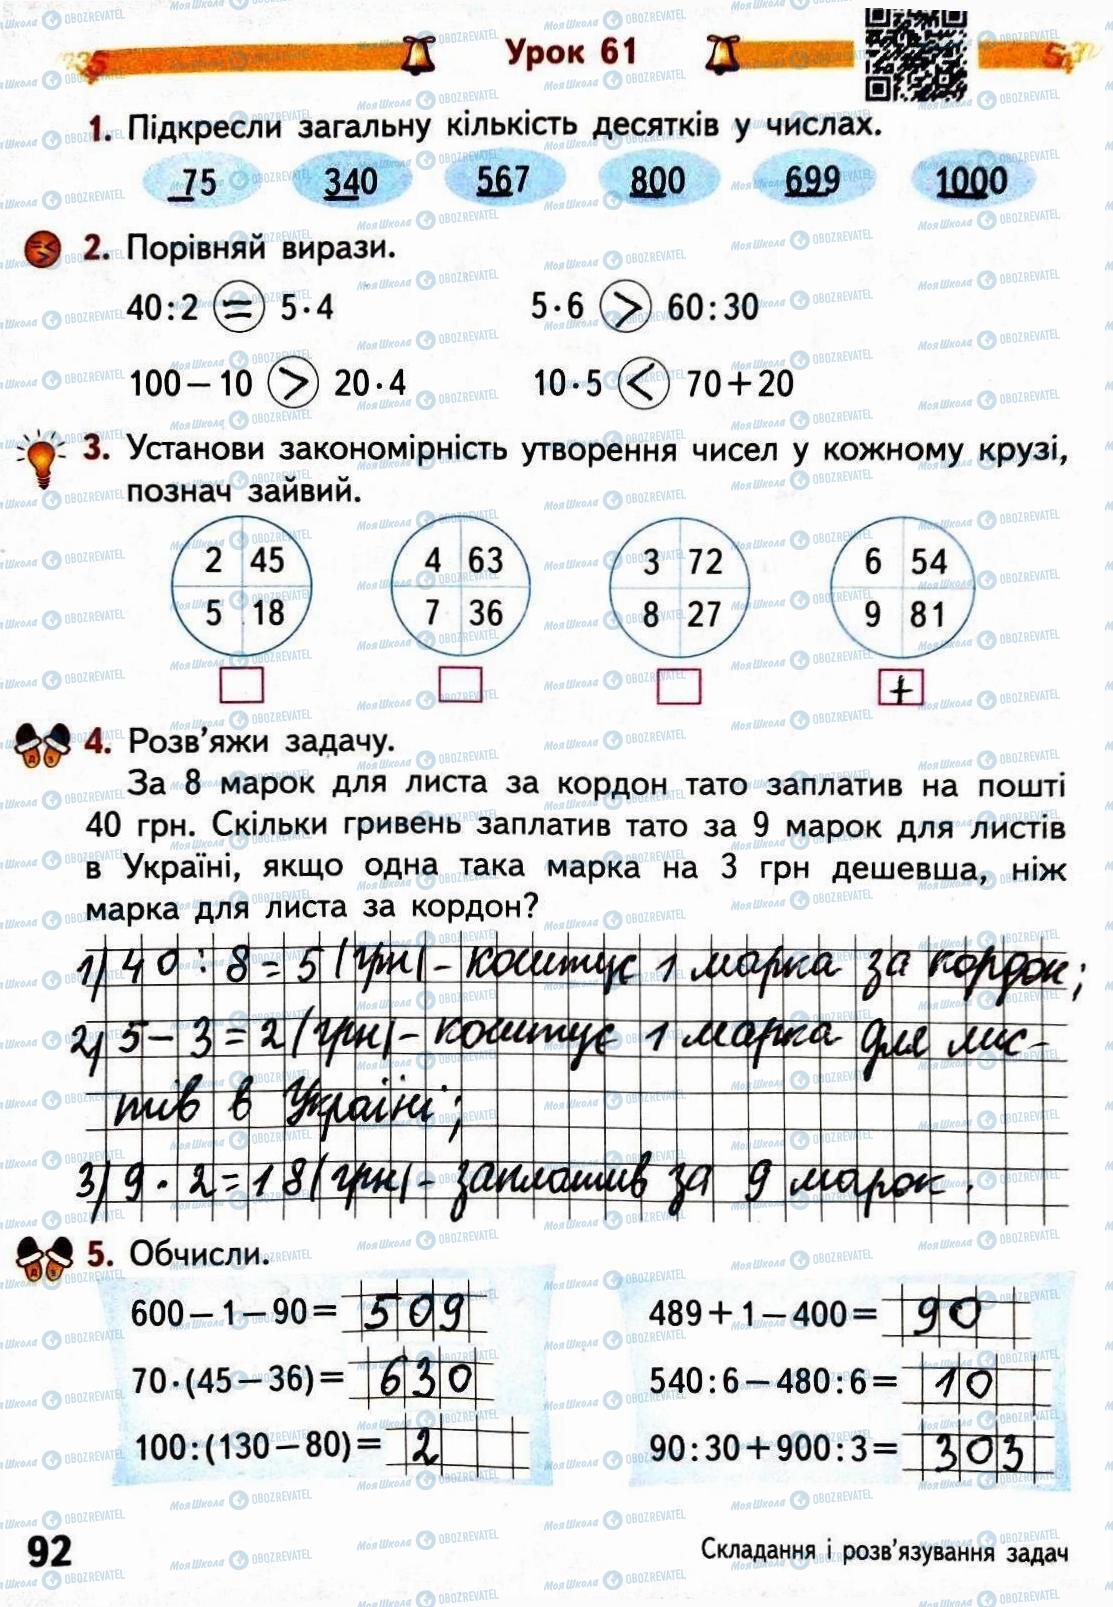 Урок 61
1. Підкресли загальну кількість десятків у числах.
75 340 567 800 699 1000
2. Порівняй вирази.
40:2 = 5·4 5·6 > 60:30
100−10 > 20·4 10·5 < 70+20
3. Установи закономірність утворення чисел у кожному крузі,
познач зайвий.
2 45 4 63 3 72 6 54
5 18 7 36 8 27 9 81
+
4. Розв'яжи задачу.
За 8 марок для листа за кордон тато заплатив на пошті
40 грн. Скільки гривень заплатив тато за 9 марок для листів
в Україні, якщо одна така марка на 3 грн дешевша, ніж
марка для листа за кордон?
1) 40 : 8 = 5 (грн) - коштує 1 марка за кордон;
2) 5 − 3 = 2 (грн) - коштує 1 марка для лис-
тів в Україні;
3) 9 · 2 = 18 (грн) - заплатив за 9 марок.
5. Обчисли.
600−1−90= 509 489+1−400= 90
70·(45−36)= 630 540:6−480:6= 10
100:(130−80)= 2 90:30+900:3= 303
92 Складання і розв'язування задач
МояШкола OBOZREVATEL